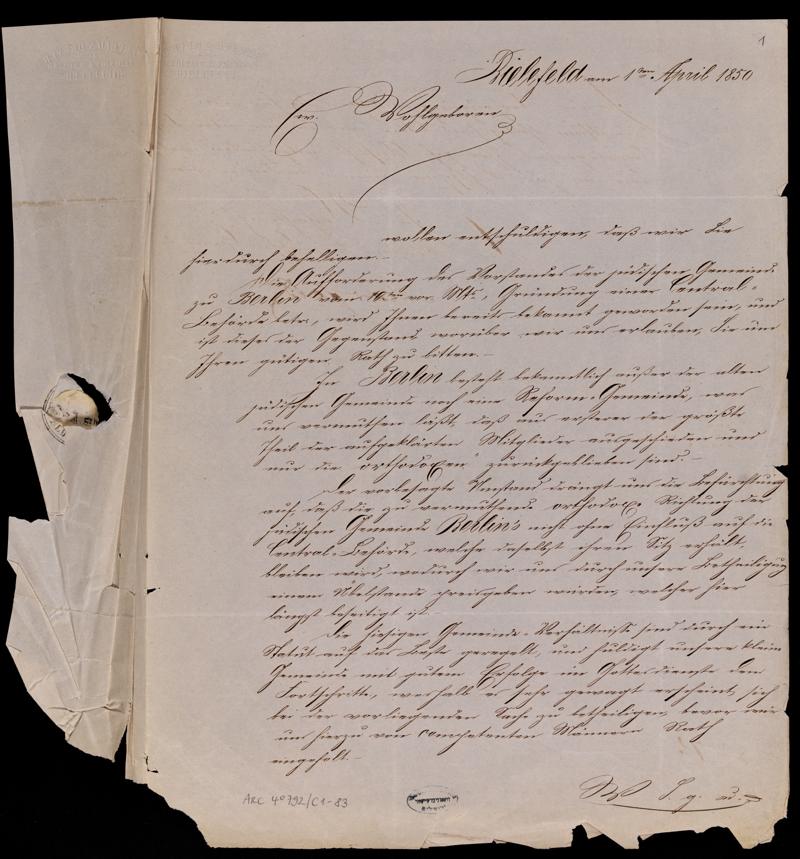 1
Bielefeld am 1ten April 1850
Ew. Wohlgeboren
wollen entschuldigen, daß wir Sie
hierdurch behelligen.
Die Aufforderung des Vorstandes der jüdischen Gemeinde
zu Berlin vom vor. Mts., Gründung einer Central-
Behörde betr., wird Ihnen bereits bekannt geworden sein, und
ist dieses der Gegenstand worüber wir uns erlauben, Sie um
Ihren gütigen Rath zu bitten.
In Berlin besteht bekanntlich außer der alten
jüdischen Gemeinde noch eine Reform-Gemeinde, was
uns vermuthen läßt, daß aus ersterer der größte
Theil der aufgeklärten Mitglieder ausgeschieden und
nur die orthodoxen zurückgeblieben sind.
Der vorbesagte Umstand drängt uns die Befürchtung
auf, daß die zu vermuthende orthodoxe Richtung der
jüdischen Gemeinde Berlin's nicht ohne Einfluß auf die
Central-Behörde, welche daselbst ihren Sitz erhält,
bleiben wird, wodurch wir uns durch unsere Betheiligung
einem Übelstande preisgeben würden, welcher hier
längst beseitigt ist.
Die hiesigen Gemeinde-Verhältnisse sind durch ein
Statut auf das Beste geregelt, und huldigt unsere kleine
Gemeinde mit gutem Erfolge im Gottesdienste dem
Fortschritte, weshalb es sehr gewagt erscheint, sich
bei der vorliegenden Sache zu betheiligen, bevor wir
uns hierzu von competenten Männern Rath
eingeholt.
ARC 4° 792/C1-83